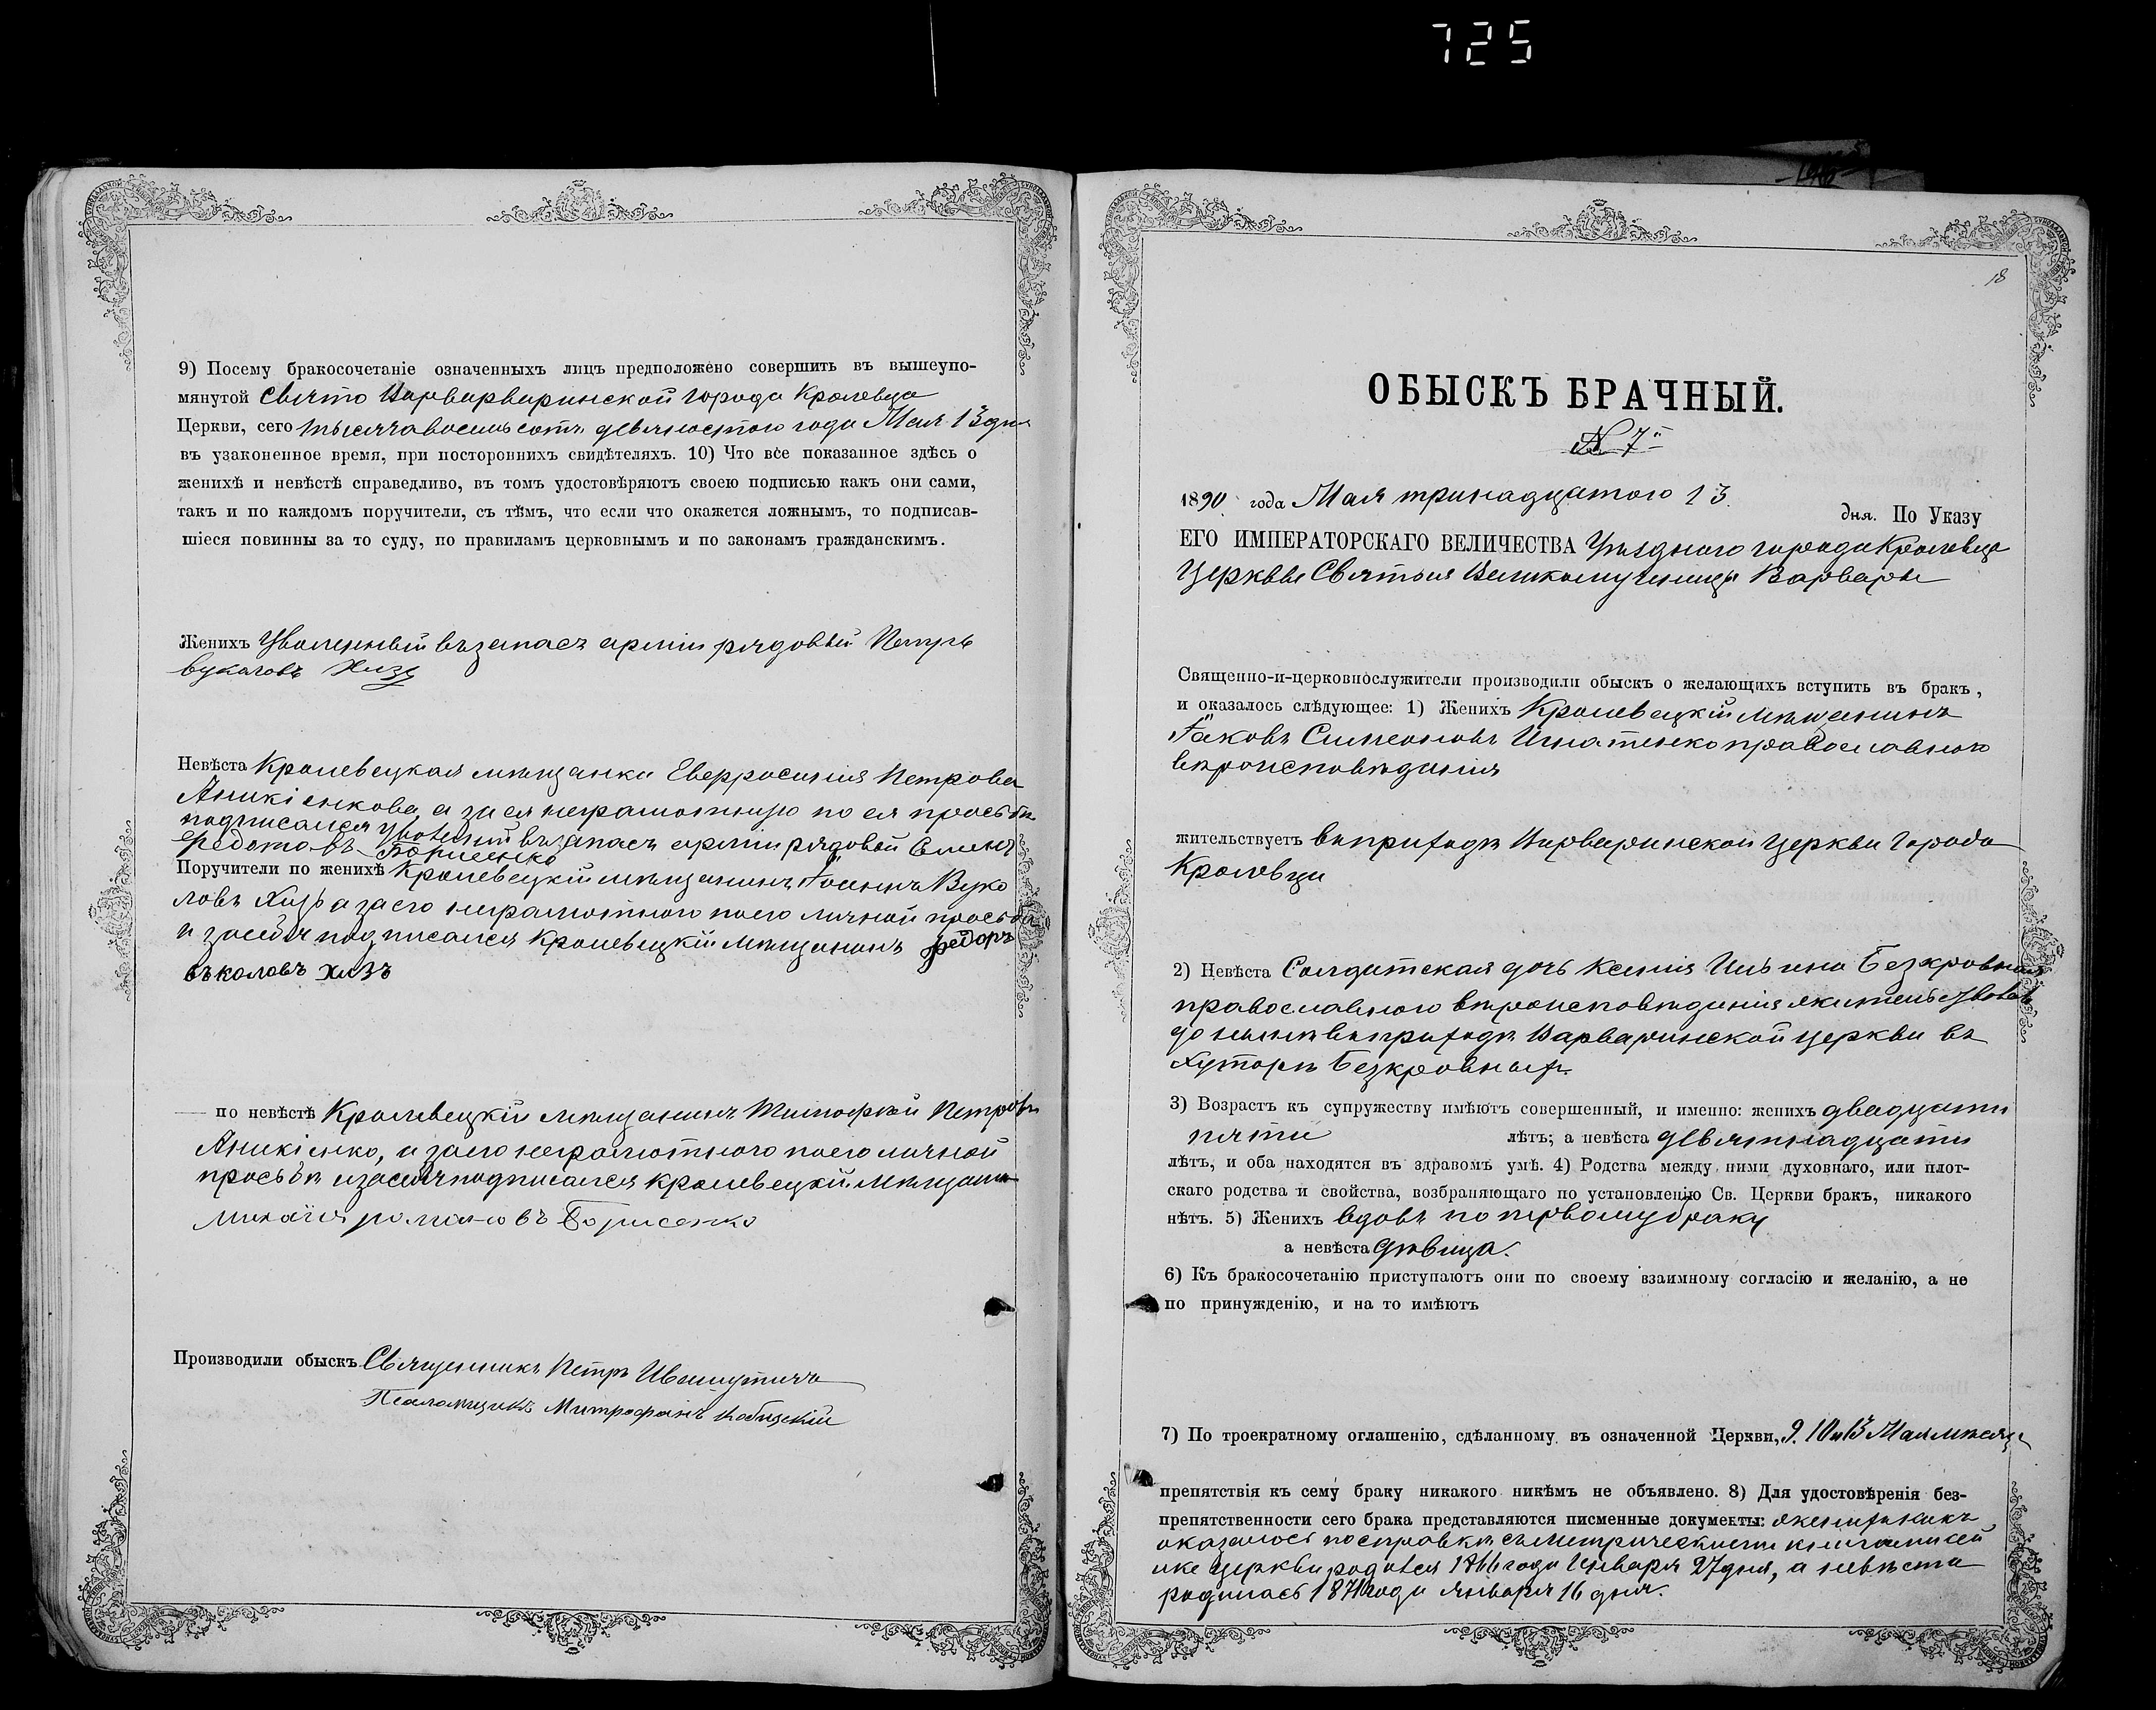 725
9) Посему бракосочетаніе означенныхъ лицъ предположено совершить въ вышеупо-
мянутой Свято Варварваринской города Кролевца
Церкви, сего тысяча восемь сотъ девяностого года Мая 13 дня
въ узаконенное время, при постороннихъ свидѣтеляхъ. 10) Что все показанное здѣсь о
женихѣ и невѣстѣ справедливо, въ томъ удостовѣряютъ своею подписью какъ они сами,
такъ и по каждомъ поручители, съ тѣмъ, что если что окажется ложнымъ, то подписав-
шіеся повинны за то суду, по правиламъ церковнымъ и по законамъ гражданскимъ.
Женихъ Уволенный въ запасъ арміи рядовый Петръ
Вукаловъ Хизъ
Невѣста Кролевецкая мѣщанка Евфросинія Петрова
Аникіенкова, а за ея неграмотную по ея просьбѣ
подписался уволеный въ запасъ арміи рядовой
Федотовъ Борисенко
Поручители по женихѣ Кролевецкій мѣщанинъ Іосифъ Вуко
ловъ Хизъ а за его неграмотного по его личной просьбѣ
и за себя подписался Кролевецкій мѣщанинъ Федоръ
въколовъ хизъ
— по невѣстѣ Кролевецкій мѣщанинъ Тимофей Петровъ
Аникіенко, а за его неграмотного по его личной
просьбѣ и за себя подписался кролевецкій мѣщанин
Романовъ Борисенко
Производили обыскъ Священникъ Петръ Ивашутичъ
Псаломщикъ Митрофанъ
18
ОБЫСКЪ БРАЧНЫЙ.
№ 7й
1890 года Мая тринадцатого 13 дня. По Указу
ЕГО ИМПЕРАТОРСКАГО ВЕЛИЧЕСТВА Уѣздного города Кролевца
Церквы Святыя Великомученицы Варвары
Священно-и-церковнослужители производили обыскъ о желающихъ вступить въ бракъ,
и оказалось слѣдующее: 1) Женихъ Кролевецкій мѣщанинъ
Іаковъ Симеоновъ Игнатенко православного
вѣроисповѣданія
жительствуетъ въ приходѣ Варваринской церкви города
Кролевца
2) Невѣста Солдатская дочь Ксенія Ильина Безкровная
православного вѣроисповѣданія жительствовала
до нынѣ въ приходѣ Варваринской церкви въ
Хуторѣ Безкровныхъ.
3) Возрастъ къ супружеству имѣютъ совершенный, и именно: женихъ двадцати
пяти лѣтъ; а невѣста девятнадцати
лѣтъ, и оба находятся въ здравомъ умѣ. 4) Родства между ними духовнаго, или плот-
скаго родства и свойства, возбраняющаго по установленію Св. Церкви бракъ, никакого
нѣтъ. 5) Женихъ вдовъ по первому браку
а невѣста дѣвица.
6) Къ бракосочетанію приступаютъ они по своему взаимному согласію и желанію, а не
по принужденію, и на то имѣютъ
7) По троекратному оглашенію, сдѣланному въ означенной Церкви, 9. 10 и 13 Мая мѣсяца
препятствія къ сему браку никакого никѣмъ не объявлено. 8) Для удостовѣренія без-
препятственности сего брака представляются писменные документы: женихъ какъ
оказалось по справкѣ съ метрическими книгами сей
же церкви родился 1866 года Января 27 дня, а невѣста
родилась 1871 года Января 16 дня.